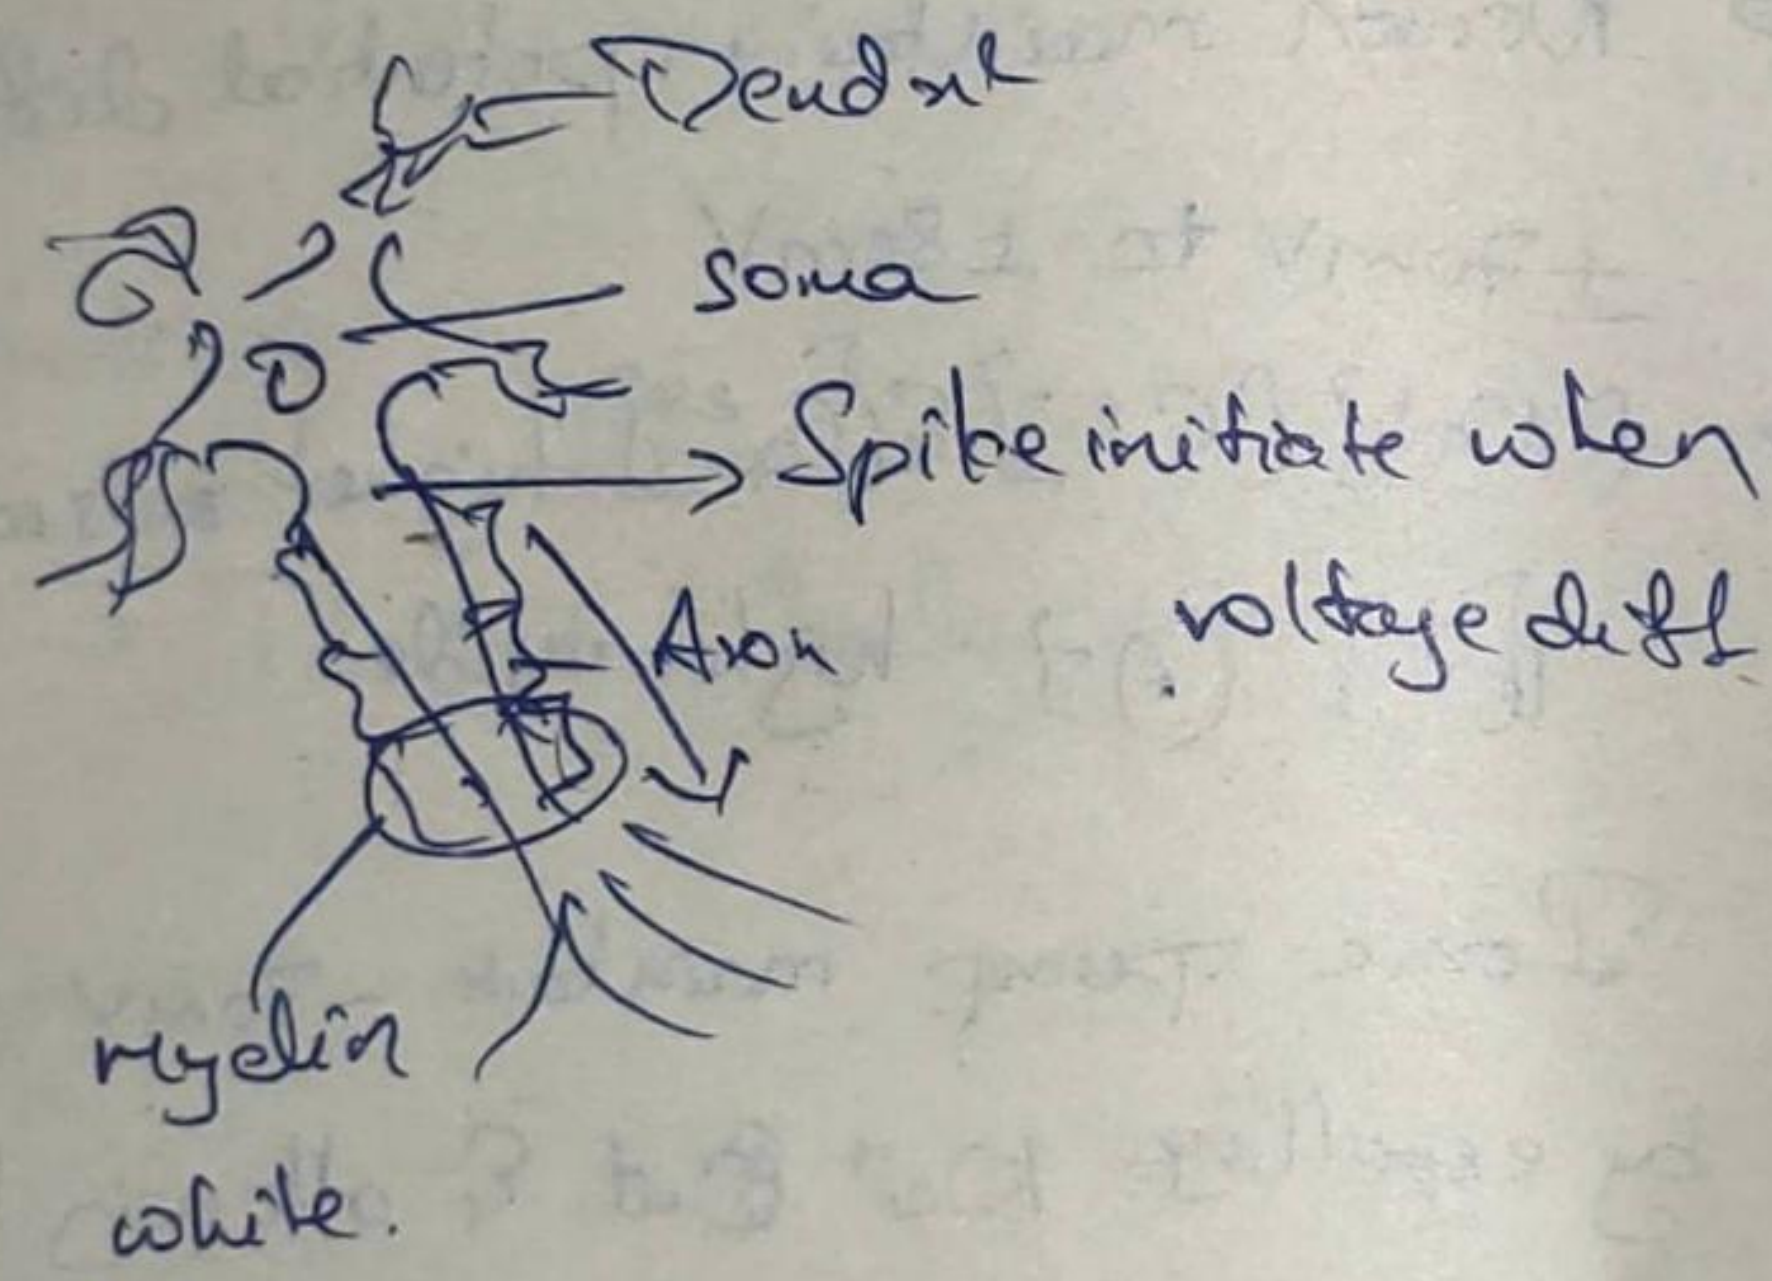 Dendrit
soma
Spike initiate when
voltage diff
Axon
myelin
white.